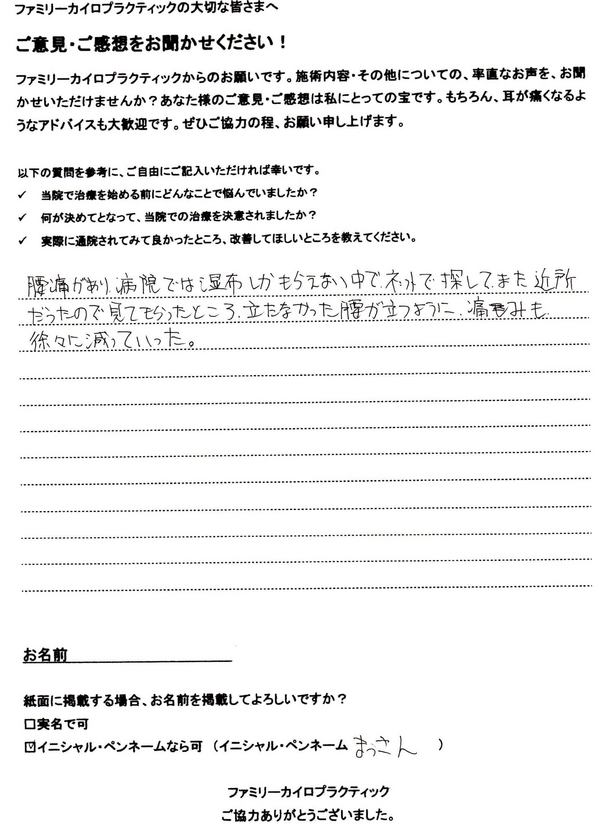 ファミリーカイロプラクティックの大切な皆さまへ
ご意見・ご感想をお聞かせください！
ファミリーカイロプラクティックからのお願いです。施術内容・その他についての、率直なお声を、お聞
かせいただけませんか？あなた様のご意見・ご感想は私にとっての宝です。もちろん、耳が痛くなるよ
うなアドバイスも大歓迎です。ぜひご協力の程、お願い申し上げます。
以下の質問を参考に、ご自由にご記入いただければ幸いです。
✓ 当院で治療を始める前にどんなことで悩んでいましたか？
✓ 何が決めてとなって、当院での治療を決意されましたか？
✓ 実際に通院されてみて良かったところ、改善してほしいところを教えてください。
腰痛があり、病院では湿布しかもらえない中で、ネットで探して、また近所
だったので見てもらったところ、立たなかった腰が立つように、痛みも
徐々に減っていった。
お名前
紙面に掲載する場合、お名前を掲載してよろしいですか？
□実名で可
☑イニシャル・ペンネームなら可（イニシャル・ペンネーム まっさん ）
ファミリーカイロプラクティック
ご協力ありがとうございました。